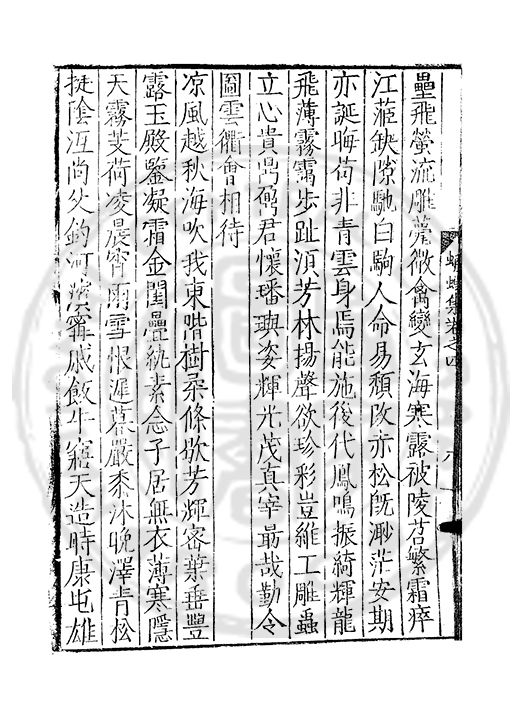 壘飛螢流雕甍微禽變玄海寒露被陵苕繁霜瘁
江蓠缺隙馳白駒人命易頹改赤松旣渺茫安期
亦誕晦苟非青雲身焉能施後代鳳鳴振綺輝龍
飛薄霧靄步趾湏芳林揚聲欲珍彩豈維工雕蟲
立心貴勗彌君懷璠璵姿輝光茂真宰最哉勤令
圖雲衢會相待
凉風越秋海吹我東階樹柔條欲芳輝密葉垂豐
露玉殿鑒凝霜金閨疊紈素念子居無衣薄寒隱
天霧芰荷凌晨霄雨雪恨遲暮嚴黍沐晚澤青松
挺陰沍尚父釣河濱甯戚飯牛寤天造時康屯雄
蠛蠓集卷之四
八